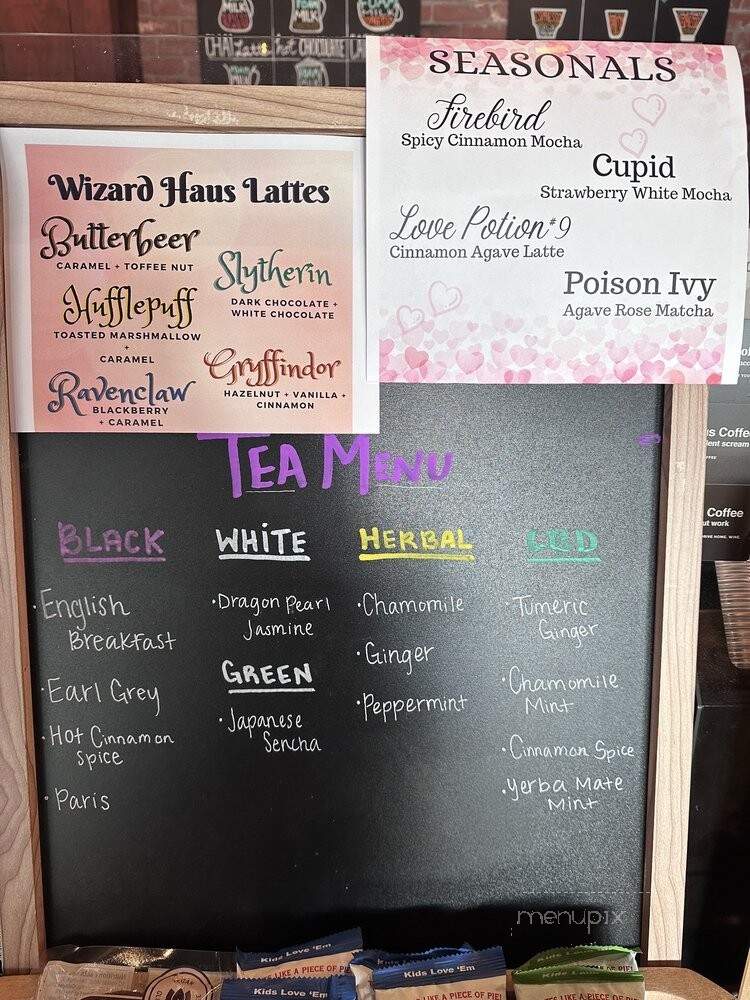 MILK
CHAI Latte hot CHOCOLATE
Wizard Haus Lattes
Butterbeer
CARAMEL + TOFFEE NUT
Slytherin
DARK CHOCOLATE +
WHITE CHOCOLATE
Hufflepuff
TOASTED MARSHMALLOW
+
CARAMEL
Gryffindor
HAZELNUT + VANILLA +
CINNAMON
Ravenclaw
BLACKBERRY
+ CARAMEL
SEASONALS
Firebird
Spicy Cinnamon Mocha
Cupid
Strawberry White Mocha
Love Potion #9
Cinnamon Agave Latte
Poison Ivy
Agave Rose Matcha
TEA MENU
BLACK
• English
Breakfast
• Earl Grey
• Hot Cinnamon
Spice
• Paris
WHITE
• Dragon Pearl
Jasmine
GREEN
• Japanese
Sencha
HERBAL
• Chamomile
• Ginger
• Peppermint
ICED
• Tumeric
Ginger
• Chamomile
Mint
• Cinnamon Spice
• Yerba Mate
Mint
Coffee
menupix
Kids Love 'Em
LIKE A PIECE OF PIE!
Kids Love 'Em
Kids Love 'Em
Kids Love 'Em
LIKE A PIECE OF PIE!